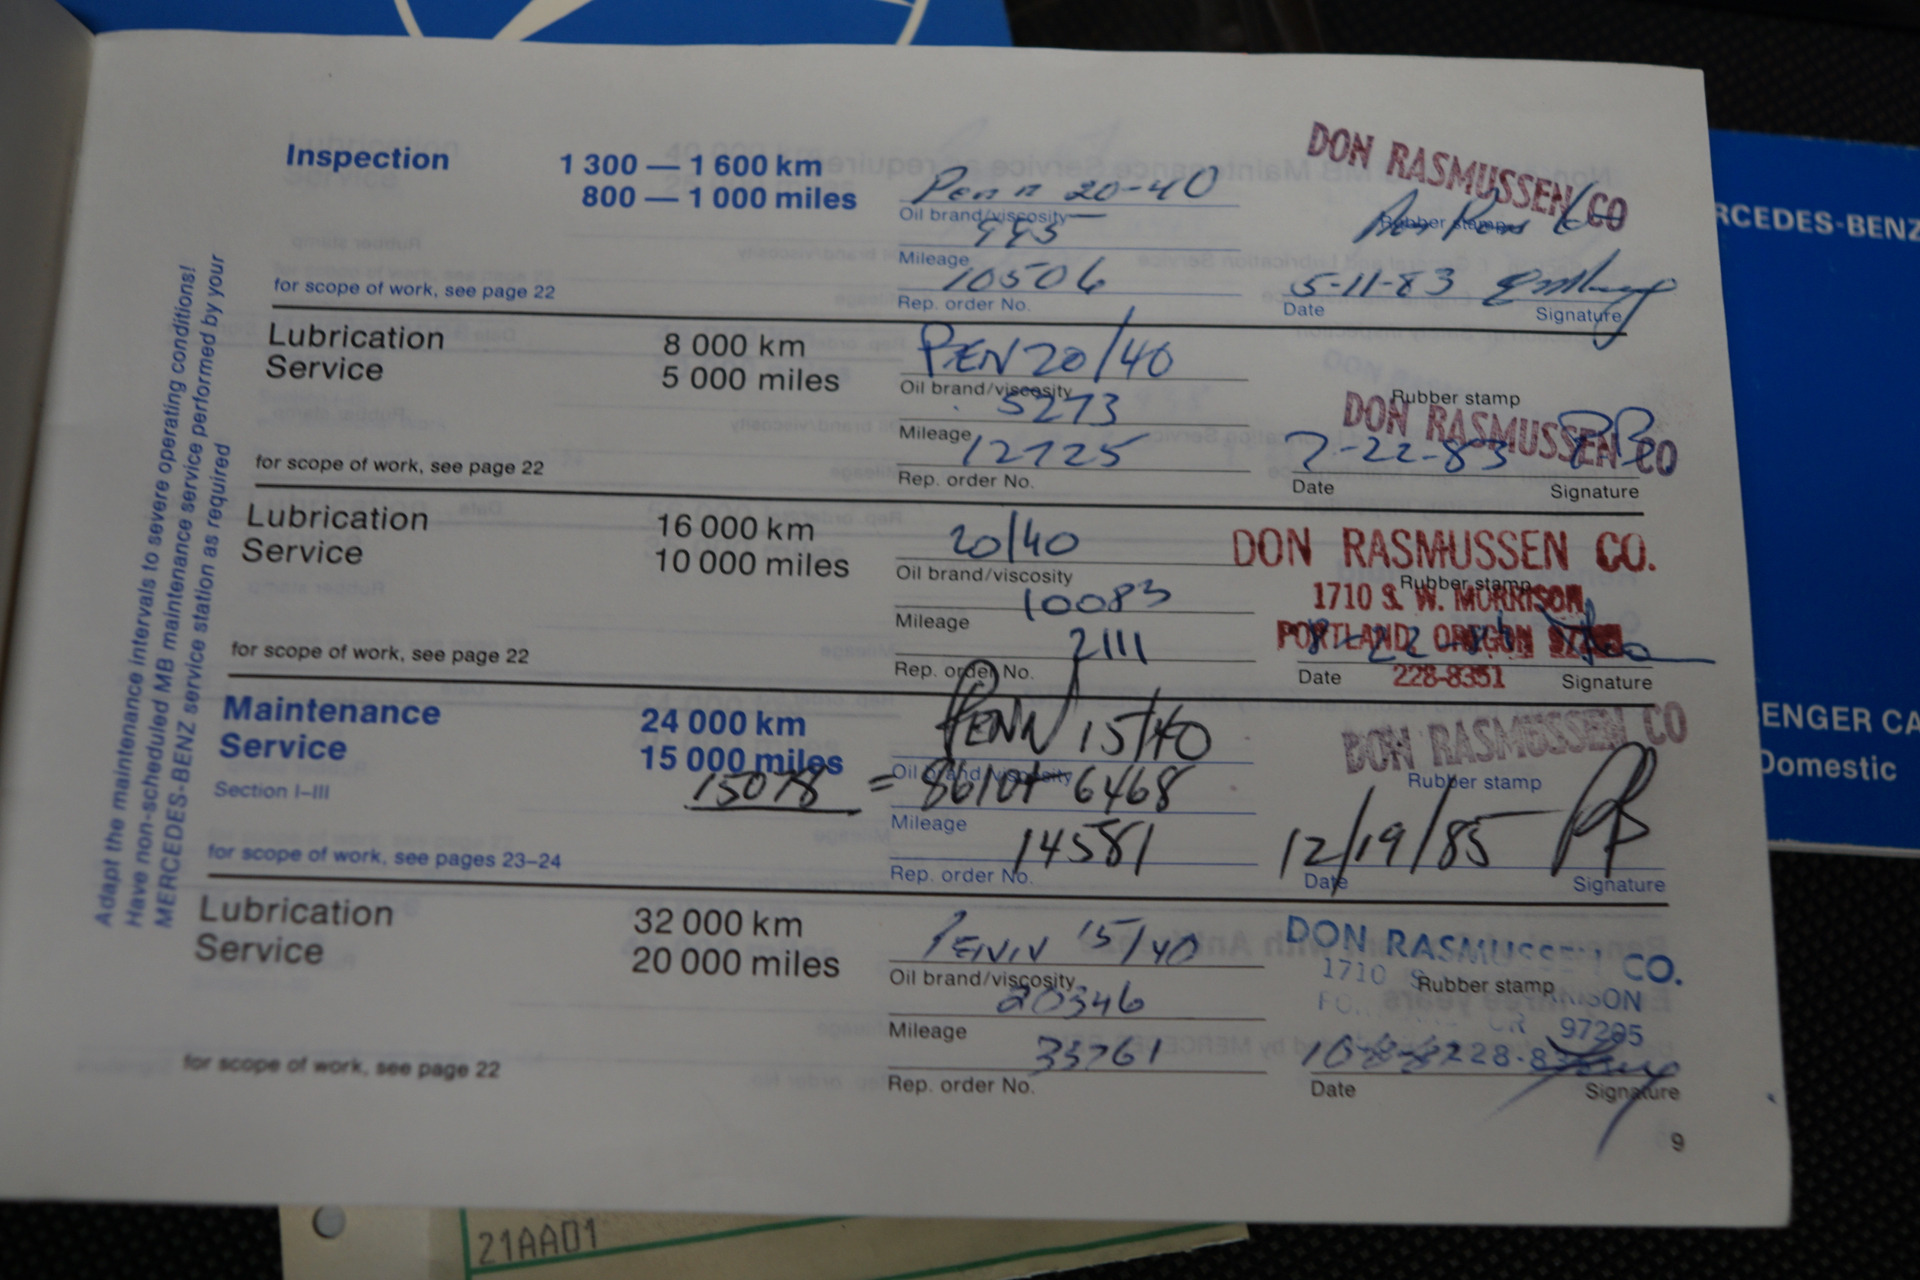 Inspection
1 300 — 1 600 km
800 — 1 000 miles
for scope of work, see page 22
Penn 20-40
Oil brand/viscosity
995
Mileage
10506
Rep. order No.
DON RASMUSSEN CO
Rubber stamp
5-11-83
Date
Signature
Lubrication
Service
8 000 km
5 000 miles
for scope of work, see page 22
PEN 20/40
Oil brand/viscosity
5273
Mileage
12725
Rep. order No.
Rubber stamp
DON RASMUSSEN CO
7-22-83
Date
Signature
Lubrication
Service
16 000 km
10 000 miles
for scope of work, see page 22
20/40
Oil brand/viscosity
10083
Mileage
2111
Rep. order No.
DON RASMUSSEN CO.
Rubber stamp
1710 S. W. MORRISON
PORTLAND, OREGON
228-8351
Date
Signature
Maintenance
Service
Section I–III
24 000 km
15 000 miles
for scope of work, see pages 23–24
PENN 15/40
Oil brand/viscosity
15078 = 8610+ 6468
Mileage
14581
Rep. order No.
DON RASMUSSEN CO
Rubber stamp
12/19/85
Date
Signature
Lubrication
Service
32 000 km
20 000 miles
for scope of work, see page 22
PENN 15/40
Oil brand/viscosity
20346
Mileage
33761
Rep. order No.
DON RASMUSSEN CO.
1710
Rubber stamp
97205
Date
Signature
9
Adapt the maintenance intervals to severe operating conditions!
Have non-scheduled MB maintenance service performed by your
MERCEDES-BENZ service station as required
RCEDES-BENZ
ENGER CA
Domestic
21AA01